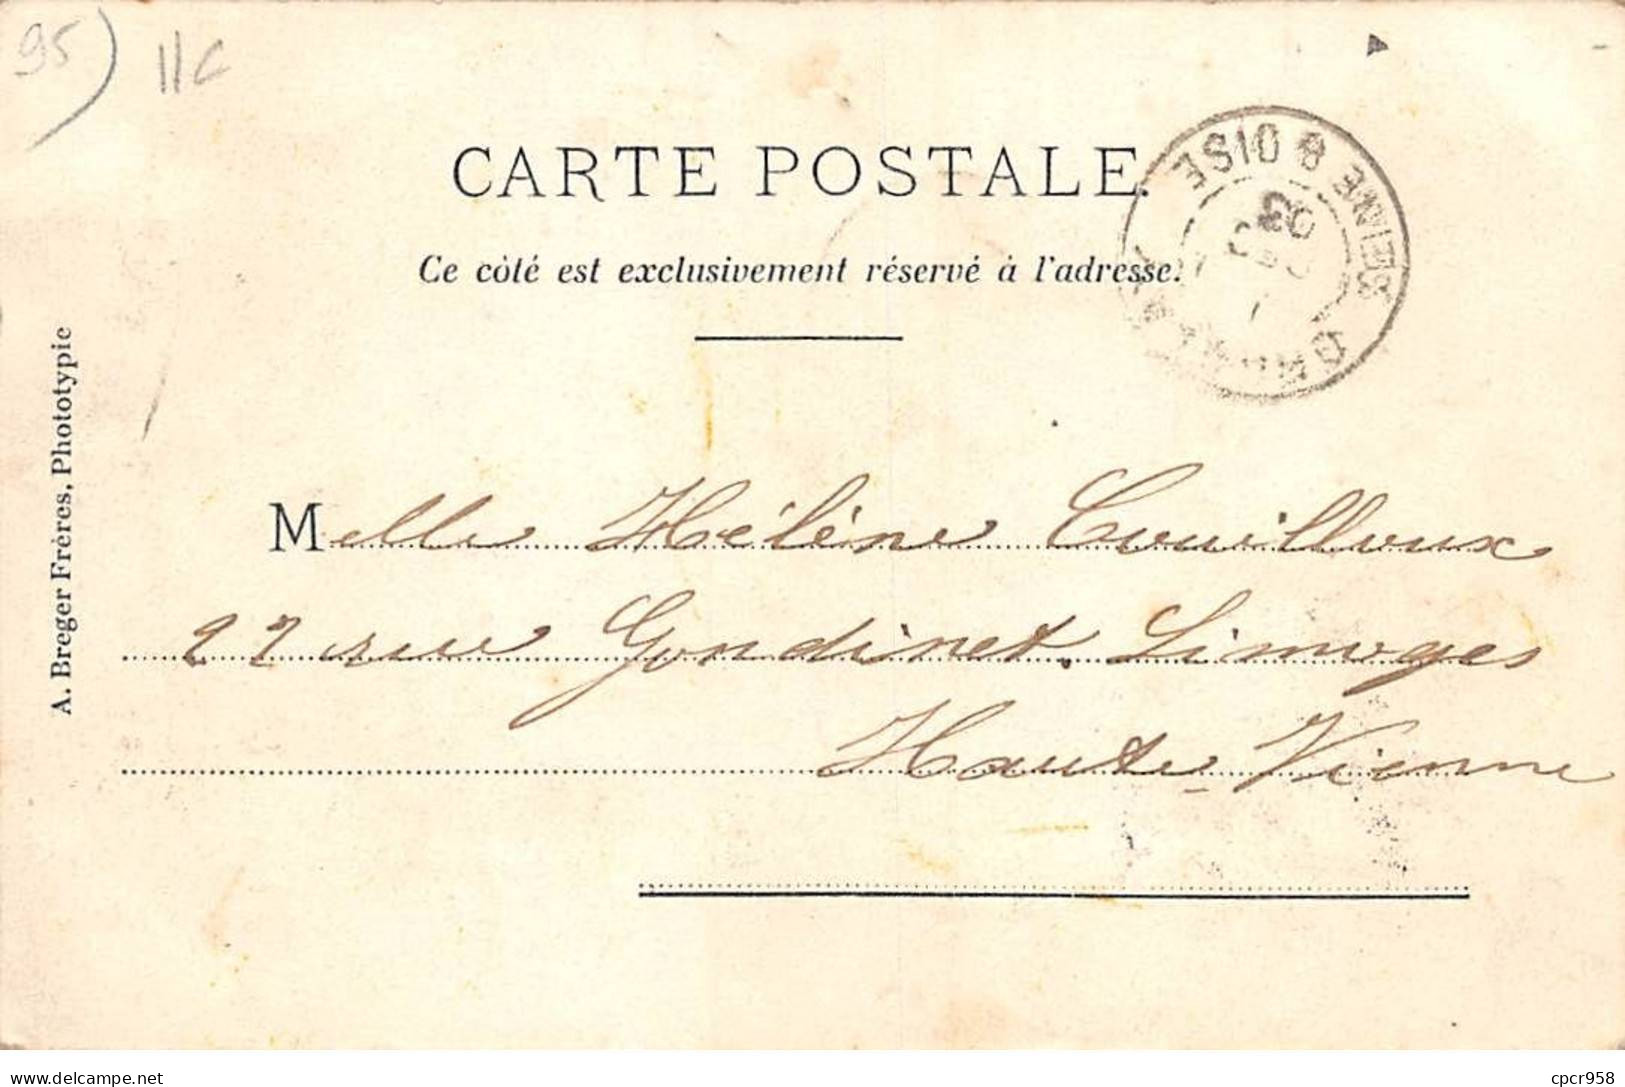 95) 11C
CARTE POSTALE.
SEINE & OISE
03
Ce côté est exclusivement réservé à l'adresse.
A. Breger Frères, Phototypie
Melle Hélène Couilloux
27 rue Gondinet. Limoges
Haute-Vienne
delcampe.net
cpcr958